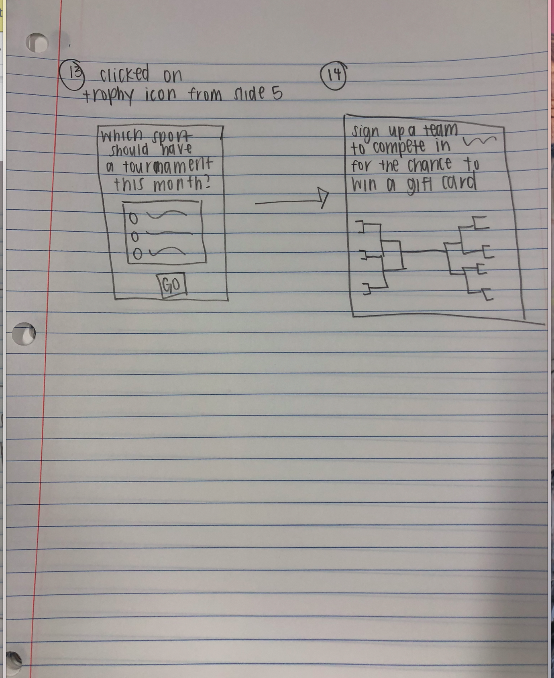 13 clicked on
trophy icon from slide 5
which sport
should have
a tournament
this month?
GO
14
sign up a team
to compete in
for the chance to
win a gift card